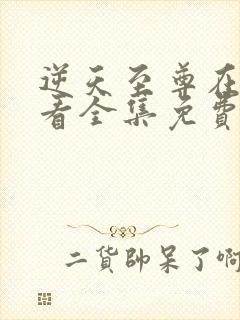 逆天至尊在
看全集免費
二貨帥呆了啊